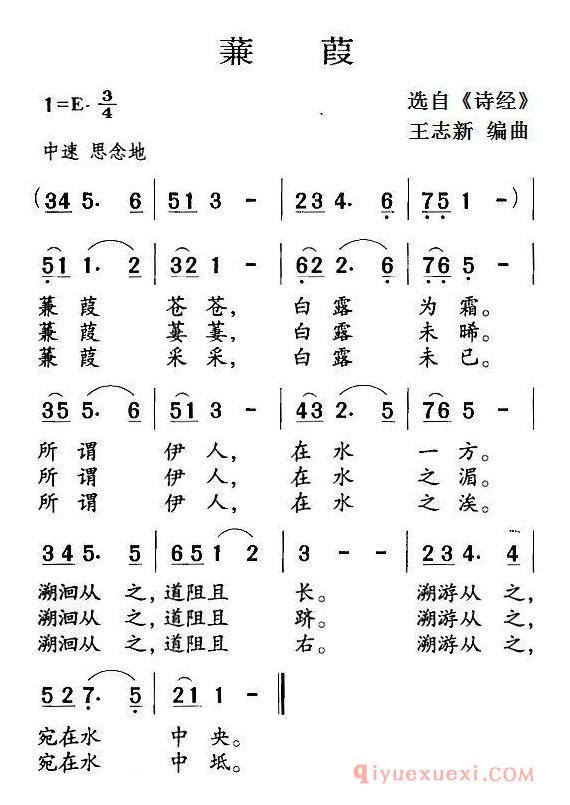 蒹 葭
1=E 3/4
选自《诗经》
王志新 编曲
中速 思念地
(345. 6 | 513 - | 234. 6 | 751 - ) |
511. 2 | 321 - | 622. 6 | 765 - |
蒹 葭 苍 苍, 白 露 为 霜。
蒹 葭 萋 萋, 白 露 未 晞。
蒹 葭 采 采, 白 露 未 已。
355. 6 | 513 - | 432. 5 | 765 - |
所 谓 伊 人, 在 水 一 方。
所 谓 伊 人, 在 水 之 湄。
所 谓 伊 人, 在 水 之 涘。
345. 5 | 651 2 | 3 - - | 234. 4 |
溯洄从 之,道阻且 长。 溯游从 之,
溯洄从 之,道阻且 跻。 溯游从 之,
溯洄从 之,道阻且 右。 溯游从 之,
527. 5 | 211 - ‖
宛在水 中 央。
宛在水 中 坻。
qiyuexuexi.com